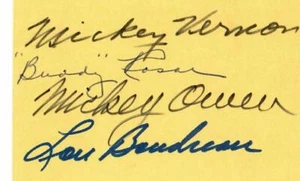 Mickey Vernon
"Buddy" Rosar
Mickey Owen
Lou Boudreau